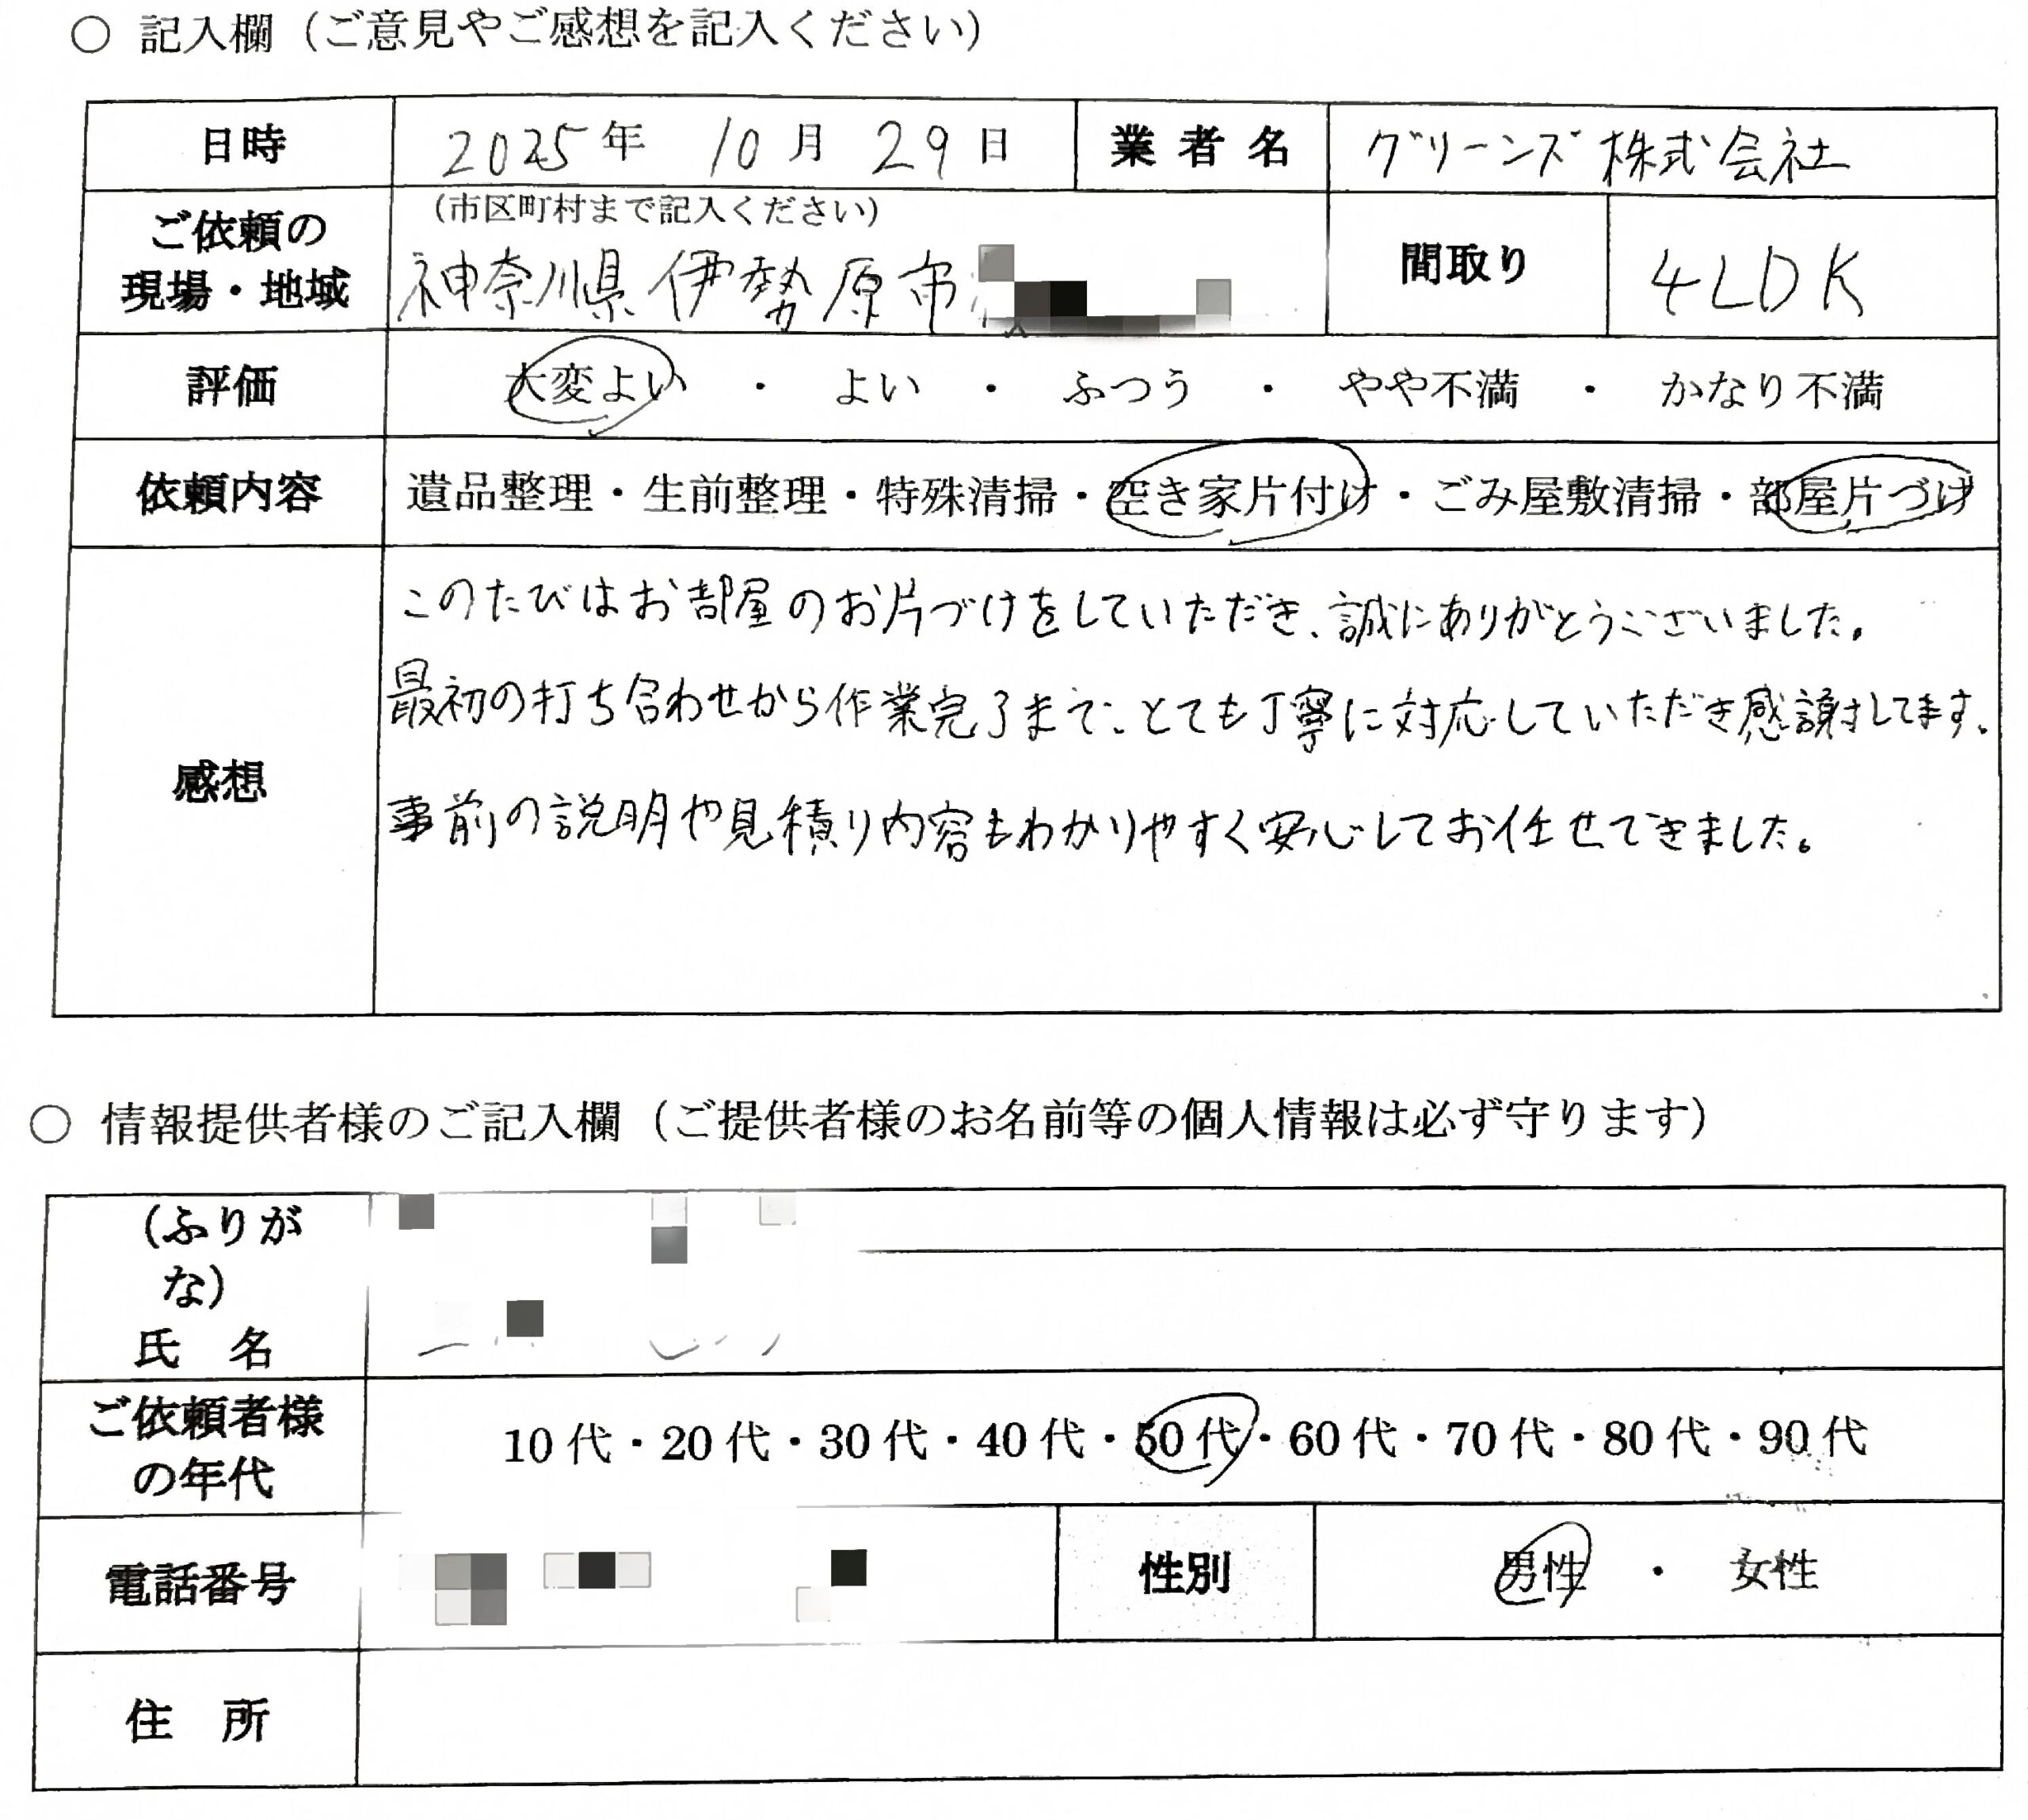 ○ 記入欄（ご意見やご感想を記入ください）
日時 2025年 10月 29日 業者名 グリーンズ株式会社
ご依頼の現場・地域 （市区町村まで記入ください） 間取り 4LDK
神奈川県伊勢原市
評価 大変よい ・ よい ・ ふつう ・ やや不満 ・ かなり不満
依頼内容 遺品整理・生前整理・特殊清掃・空き家片付け・ごみ屋敷清掃・部屋片づけ
感想
このたびはお部屋のお片づけをしていただき、誠にありがとうございました。
最初の打ち合わせから作業完了まで、とても丁寧に対応していただき感謝してます。
事前の説明や見積り内容もわかりやすく安心してお任せできました。
○ 情報提供者様のご記入欄（ご提供者様のお名前等の個人情報は必ず守ります）
（ふりが
な）
氏 名
ご依頼者様
の年代 10代・20代・30代・40代・50代・60代・70代・80代・90代
電話番号 性別 男性 ・ 女性
住 所